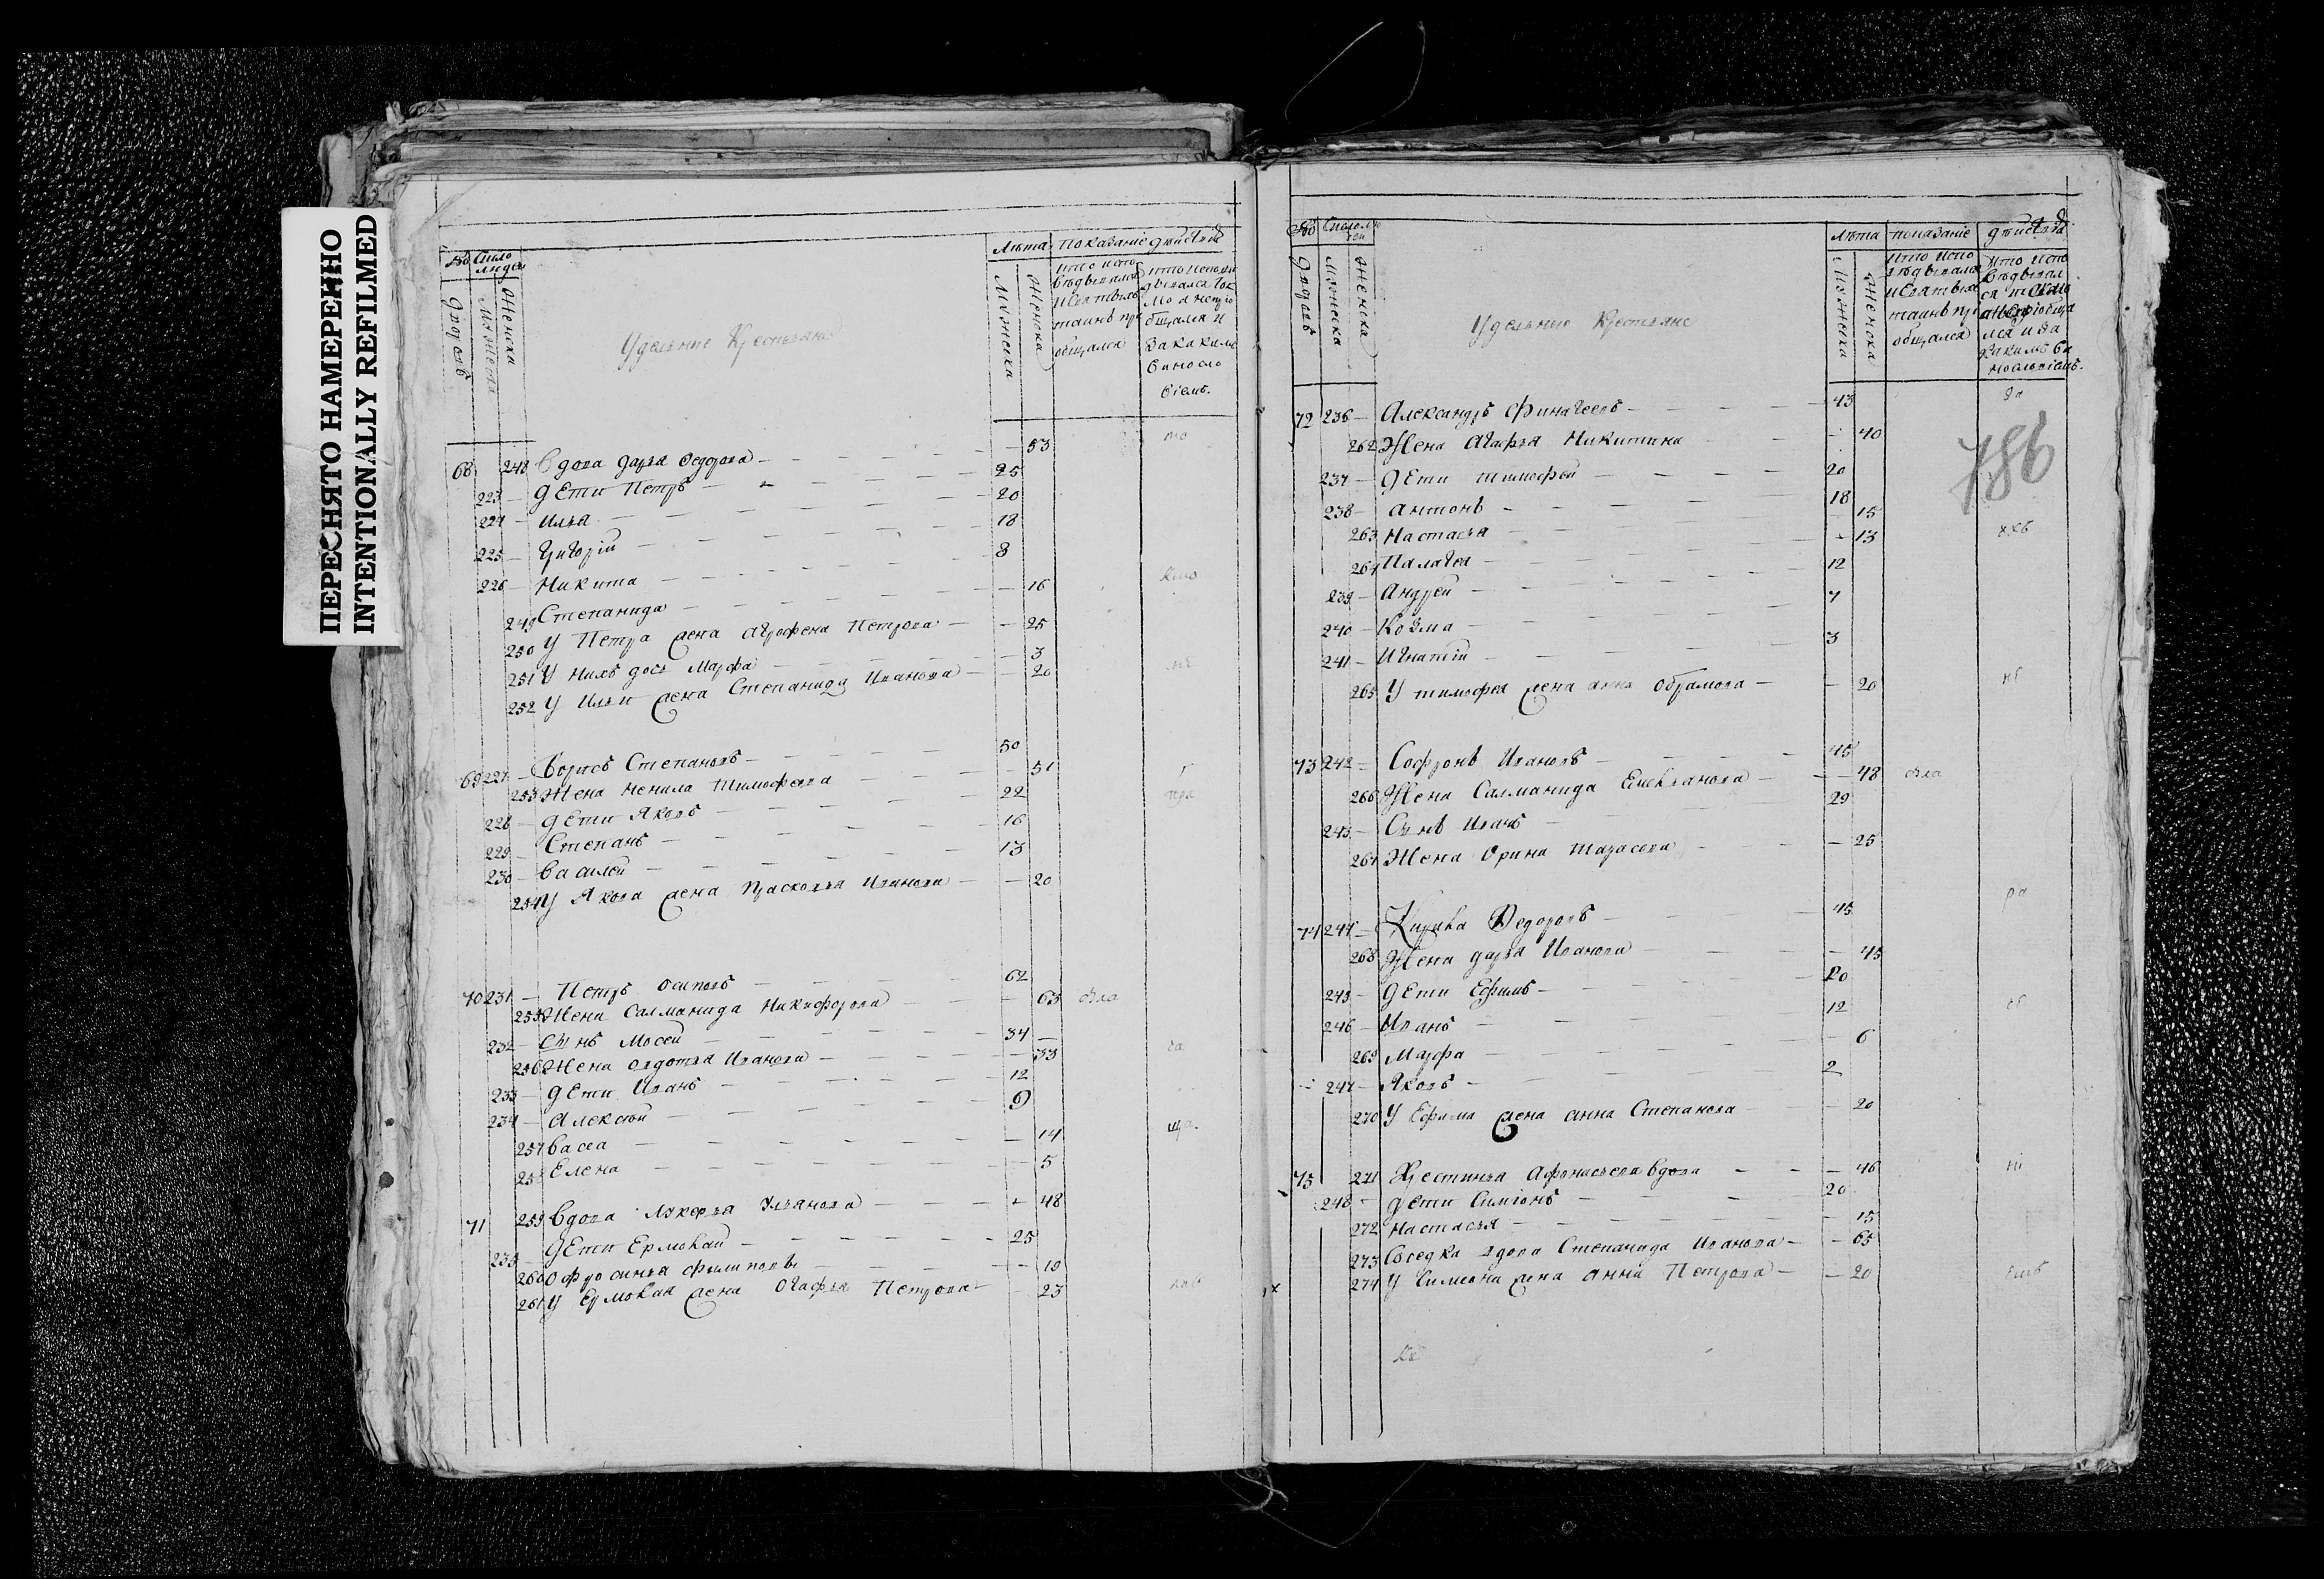 ПЕРЕСНЯТО НАМЕРЕННО
INTENTIONALLY REFILMED
Число людей
Дворовъ
Мужеска
Женска
Удельные Крестьяне
Лѣта
Мужеска
Женска
Показаніе действа
кто испо
ведывался
и святыхъ
таинъ при
общался
кто исповѣ
дывался ток
мо а не прі
общался и
за какимъ
виносло
віемъ.
68 248 Вдова Дарья Федорова — 53
223 — Дети Петръ — 25
224 — Илья — 20
225 — Григорій — 18
226 — Никита — 8
249 Степанида — 16
250 У Петра жена Аграфена Петрова — 25
251 У нихъ дочь Марфа — 3
252 У Ильи жена Степанида Иванова — 20
69 227 — Борисъ Степановъ — 50
253 Жена Ненила Тимофеева 51
228 — Дети Яковъ — 22
229 — Степанъ — 16
230 — Василей — 13
254 У Якова жена Прасковья Иванова — 20
70 231 — Петръ Осиповъ — 62
255 Жена Саламанида Никифорова 63
232 — Сынъ Мосей — 34
256 Жена Авдотья Иванова — 33
233 — Дети Иванъ — 12
234 — Алексѣй — 9
257 Васса — 14
258 Елена — 5
71 259 Вдова Лукерья Ульянова — 48
235 — Дети Ермолай — 25
260 Офросинья Филипова — 19
261 У Ермолая жена Огафья Петрова — 23
Число людей
Дворовъ
Мужеска
Женска
Удельные Крестьяне
Лѣта
Мужеска
Женска
показаніе действа
кто испо
ведывался
и святыхъ
таинъ при
общался
кто испо
ведывал
ся токмо
а не пріобща
лся и за
какимъ ви
нословіемъ.
786
72 236 — Александръ Финагеевъ — 43
262 Жена Агафья Никитина — 40
237 — Дети Тимофей — 20
238 — Антонъ — 18
263 Настасья — 15
264 Палагея — 13
239 — Андрей — 12
240 — Козма — 7
241 — Игнатій — 3
265 У Тимофея жена Анна Обрамова — 20
73 242 — Софронъ Ивановъ — 45
266 Жена Саламанида — 48
243 — Сынъ Иванъ — 29
267 Жена Орина Тарасова — 25
74 244 — Кирила Федоровъ — 45
268 Жена Дарья Иванова — 45
245 — Дети Ефимъ — 20
246 — Иванъ — 12
269 Марфа — 6
247 — Яковъ — 2
270 У Ефима жена Анна Степанова — 20
75 271 Крестинья Афонасьева вдова — 46
248 — Дети Симіонъ — 20
272 Настасья — 15
273 Соседка вдова Степанида Иванова — 65
274 У Симеона жена Анна Петрова — 20